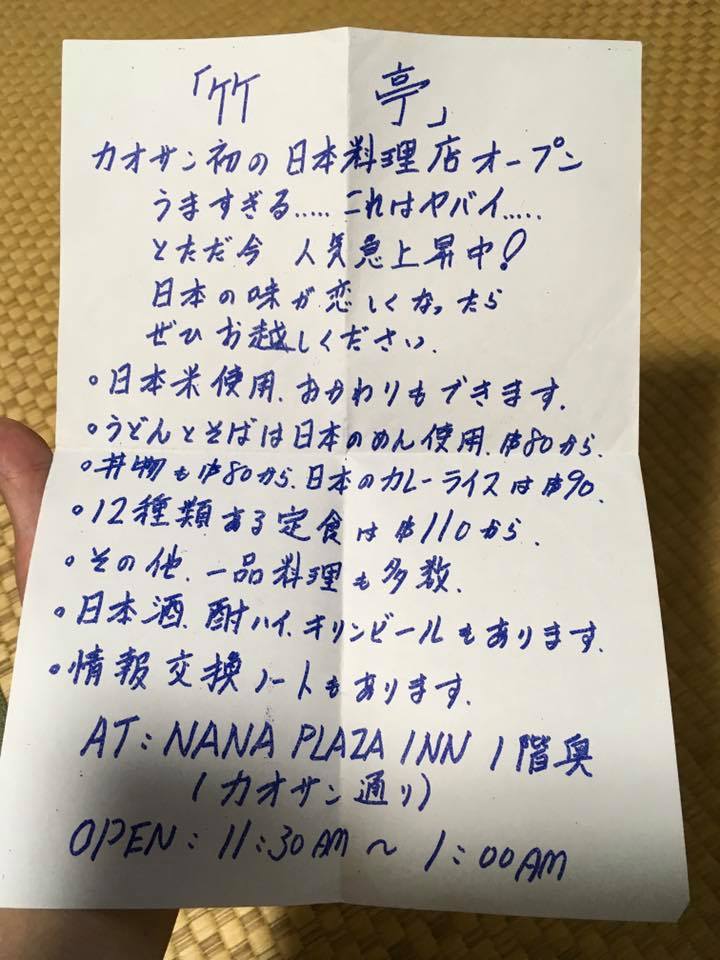 「竹 亭」
カオサン初の日本料理店オープン
うますぎる..... これはヤバイ.....
とただ今 人気急上昇中!
日本の味が恋しくなったら
ぜひお越しください.
・日本米使用. おかわりもできます.
・うどんとそばは日本のめん使用. ฿80から.
・丼物も฿80から. 日本のカレーライスは฿90.
・12種類ある定食は฿110から.
・その他. 一品料理も多数.
・日本酒. 酎ハイ. キリンビールもあります.
・情報交換ノートもあります.
AT: NANA PLAZA INN 1階奥
(カオサン通り)
OPEN: 11:30AM ~ 1:00AM